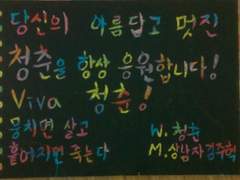 당신의 아름답고 멋진
청춘을 항상 응원합니다!
Viva 청춘!
뭉치면 살고 W. 청춘
흩어지면 죽는다 M. 상남자김주혁